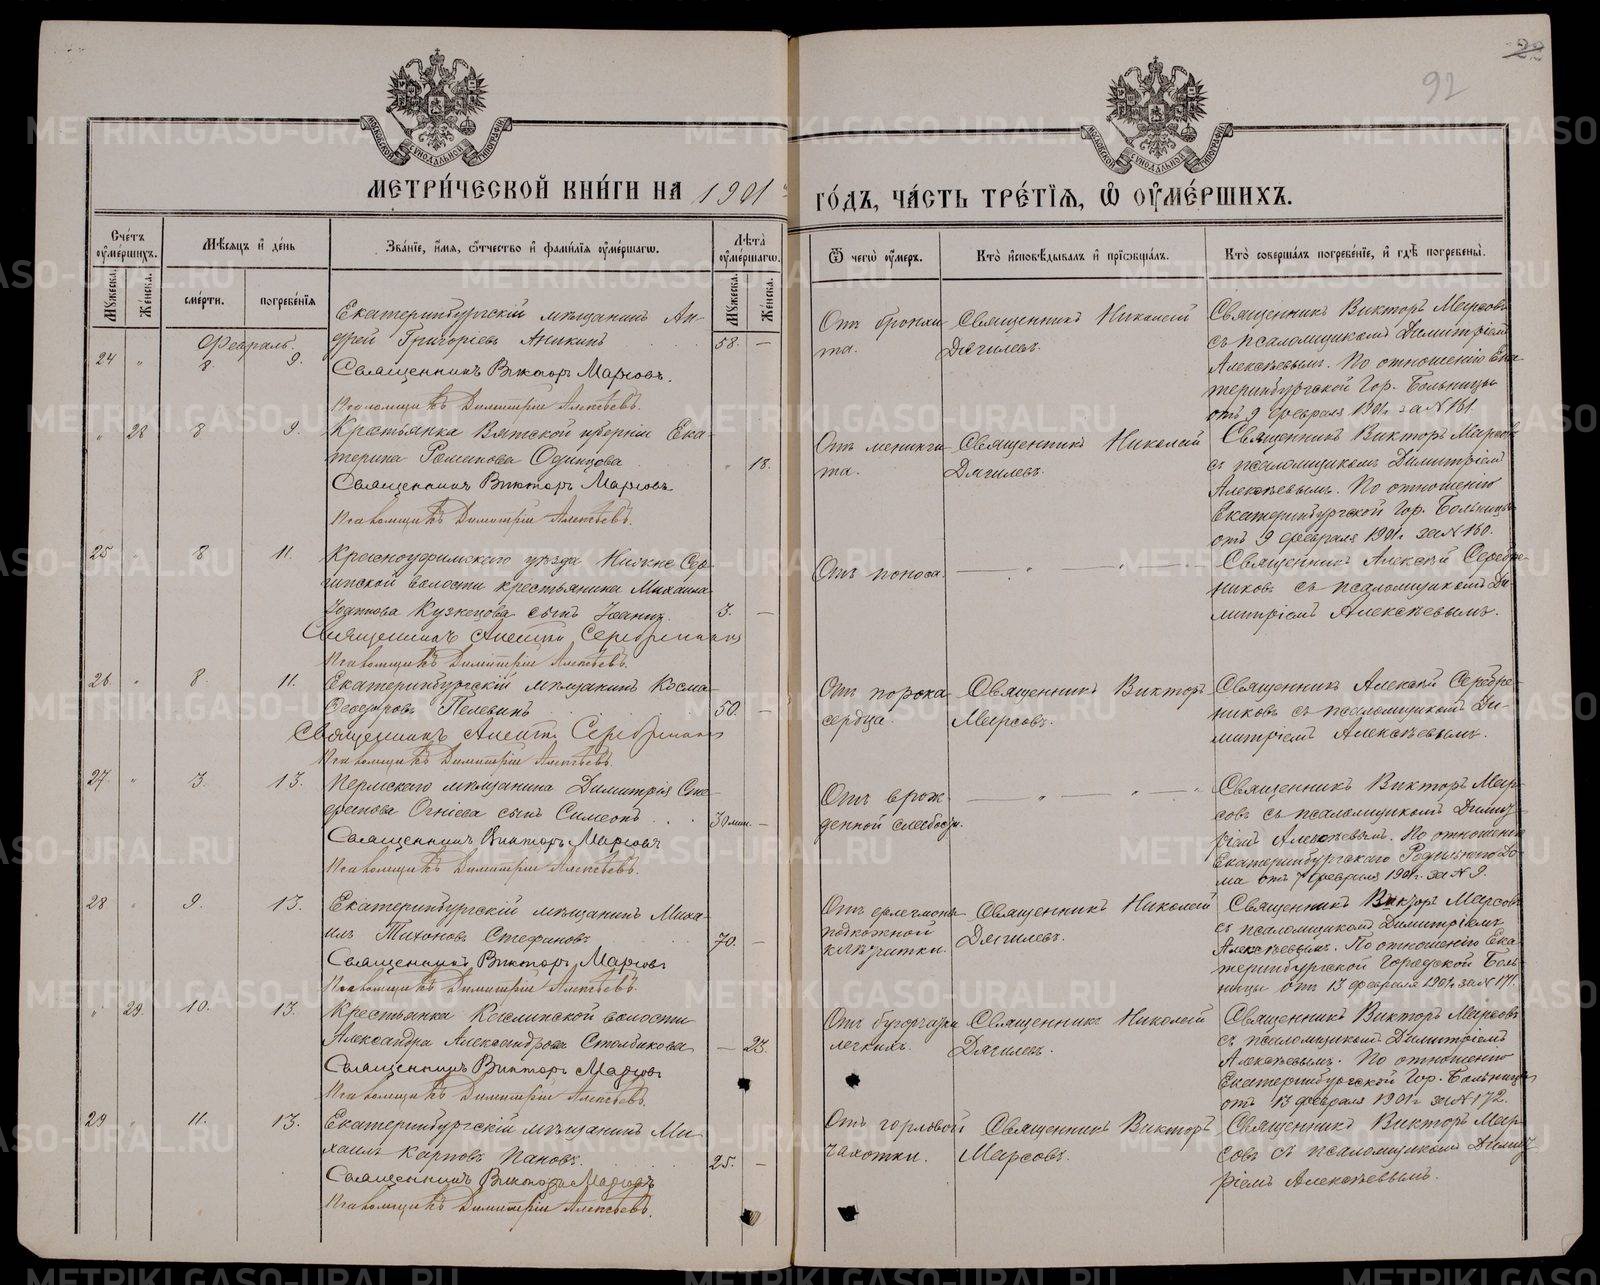 22
92
МЕТРИ́ЧЕСКОЙ КНИ́ГИ НА 1901 ГО́ДЪ, ЧА́СТЬ ТРЕ́ТІѦ, Ѡ҆ ОУ҆МЕ́РШИХЪ.
Сче́тъ оу҆ме́ршихъ.
Мꙋ́жеска.
Же́нска.
Мѣ́сяцъ и҆ де́нь
сме́рти.
погребе́нїѧ
Зва́нїе, и҆́мѧ, ѻ҆́тчество и҆ фами́лїѧ оу҆ме́ршагѡ.
Лѣ́та оу҆ме́ршагѡ.
Мꙋ́жеска.
Же́нска.
Ѿ чегѡ̀ оу҆́меръ.
Кто̀ и҆сповѣ́дывалъ и҆ прїѡбща́лъ.
Кто̀ соверша́лъ погребе́нїе, и҆ гдѣ̀ погребены̀.
Февраль.
24 " 8. 9.
Екатеринбургскій мѣщанинъ Ан-
дрей Григоріевъ Аникинъ 58. —
Священникъ Викторъ Марсовъ.
Псаломщикъ Димитрій Алексѣевъ.
Отъ бронхи-
та.
Священникъ Николай
Дягилевъ.
Священникъ Викторъ Марсовъ
съ псаломщикомъ Димитріемъ
Алексѣевымъ. По отношенію Ека-
теринбургской Гор. Больницы
отъ 9 февраля 1901г. за № 161.
" 28 8 9.
Крестьянка Вятской губерніи Ека-
терина Романова Одинцова " 18.
Священникъ Викторъ Марсовъ
Псаломщикъ Димитрій Алексѣевъ.
Отъ менинги-
та.
Священникъ Николай
Дягилевъ.
Священникъ Викторъ Марсовъ
съ псаломщикомъ Димитріемъ
Алексѣевымъ. По отношенію
Екатеринбургской Гор. Больницы
отъ 9 февраля 1901г. за № 160.
25 " 8 11.
Красноуфимскаго уѣзда Нижне-Сер-
гинской волости крестьянина Михаила
Іоаннова Кузнецова сынъ Іоаннъ. 3. —
Священникъ Алексій Серебренниковъ
Псаломщикъ Димитрій Алексѣевъ.
Отъ поноса.
Священникъ Алексій Серебре-
никовъ съ псаломщикомъ Ди-
митріемъ Алексѣевымъ.
26. " 8. 11.
Екатеринбургскій мѣщанинъ Косма
Ѳеодоровъ Пелевинъ 50. —
Священникъ Алексій Серебренниковъ
Псаломщикъ Димитрій Алексѣевъ.
Отъ порока
сердца.
Священникъ Викторъ
Марсовъ.
Священникъ Алексій Серебре-
никовъ съ псаломщикомъ Ди-
митріемъ Алексѣевымъ.
27. " 3. 13.
Пермскаго мѣщанина Димитрія Сте-
фанова Огнiева сынъ Симеонъ 30 мин. —
Священникъ Викторъ Марсовъ
Псаломщикъ Димитрій Алексѣевъ.
Отъ врож-
денной слабости.
Священникъ Викторъ Мар-
совъ съ псаломщикомъ Димит-
ріемъ Алексѣевымъ. По отношенію
Екатеринбургскаго Родильнаго До-
ма отъ 7 февраля 1901г. за № 9.
28 " 9. 13.
Екатеринбургскій мѣщанинъ Миха-
илъ Тихоновъ Стефановъ 70. —
Священникъ Викторъ Марсовъ
Псаломщикъ Димитрій Алексѣевъ.
Отъ флегмоны
подкожной
клѣтчатки.
Священникъ Николай
Дягилевъ.
Священникъ Викторъ Марсовъ
съ псаломщикомъ Димитріемъ
Алексѣевымъ. По отношенію Ека-
теринбургской Городской Боль-
ницы отъ 13 февраля 1901г. за № 171.
" 29. 10. 13.
Крестьянка Каслинской волости
Александра Александрова Столбикова — 23.
Священникъ Викторъ Марсовъ
Псаломщикъ Димитрій Алексѣевъ.
Отъ бугорчатки
легкихъ.
Священникъ Николай
Дягилевъ.
Священникъ Викторъ Марсовъ
съ псаломщикомъ Димитріемъ
Алексѣевымъ. По отношенію
Екатеринбургской Гор. Больницы
отъ 13 февраля 1901г. за № 172.
29 " 11. 13.
Екатеринбургскій мѣщанинъ Ми-
хаилъ Карповъ Пановъ. 25. —
Священникъ Викторъ Марсовъ
Псаломщикъ Димитрій Алексѣевъ.
Отъ горловой
чахотки.
Священникъ Викторъ
Марсовъ.
Священникъ Викторъ Мар-
совъ съ псаломщикомъ Димит-
ріемъ Алексѣевымъ.
METRIKI.GASO-URAL.RU